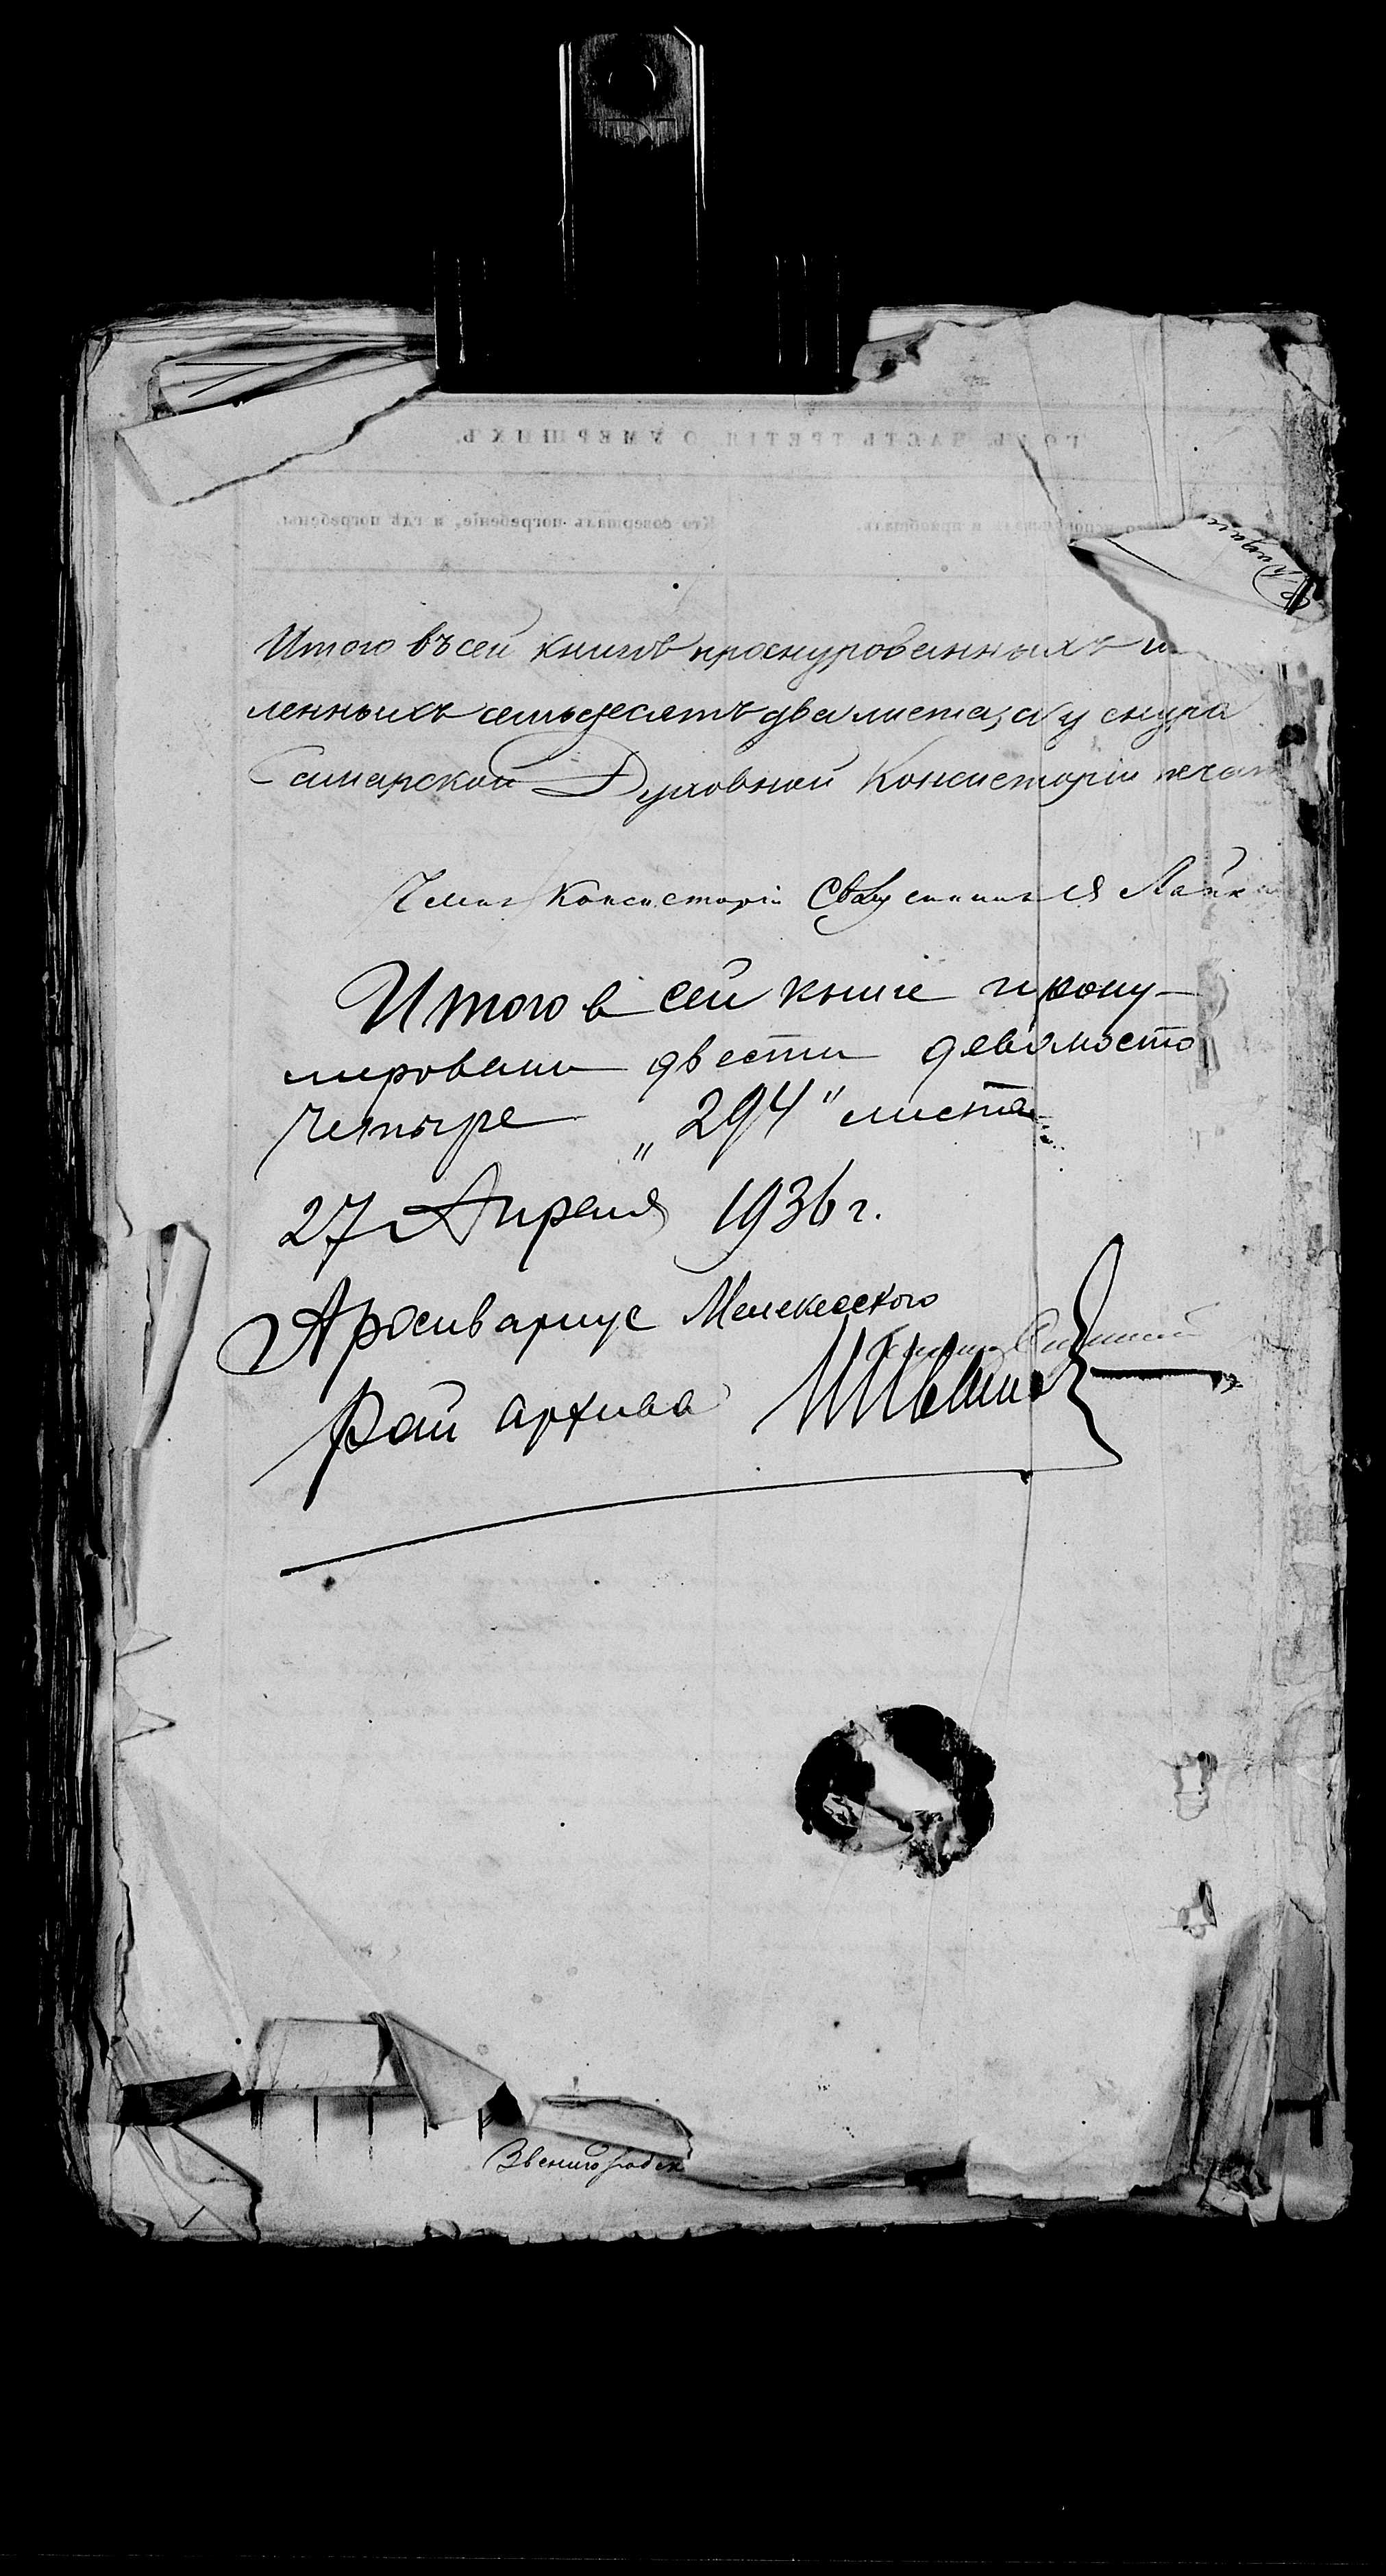 Итого въ сей книгѣ прошнурованныхъ и
ленныхъ семьдесятъ два листа, а у снура
Самарской Духовной Консисторіи печат
Членъ Консисторіи Священникъ Я
Итого в сей книге прону-
мерованы двести девяносто
четыре „294" листа
27 Апреля 1936 г.
Архивариус Мелекесского
Рай архива
Звенигородск